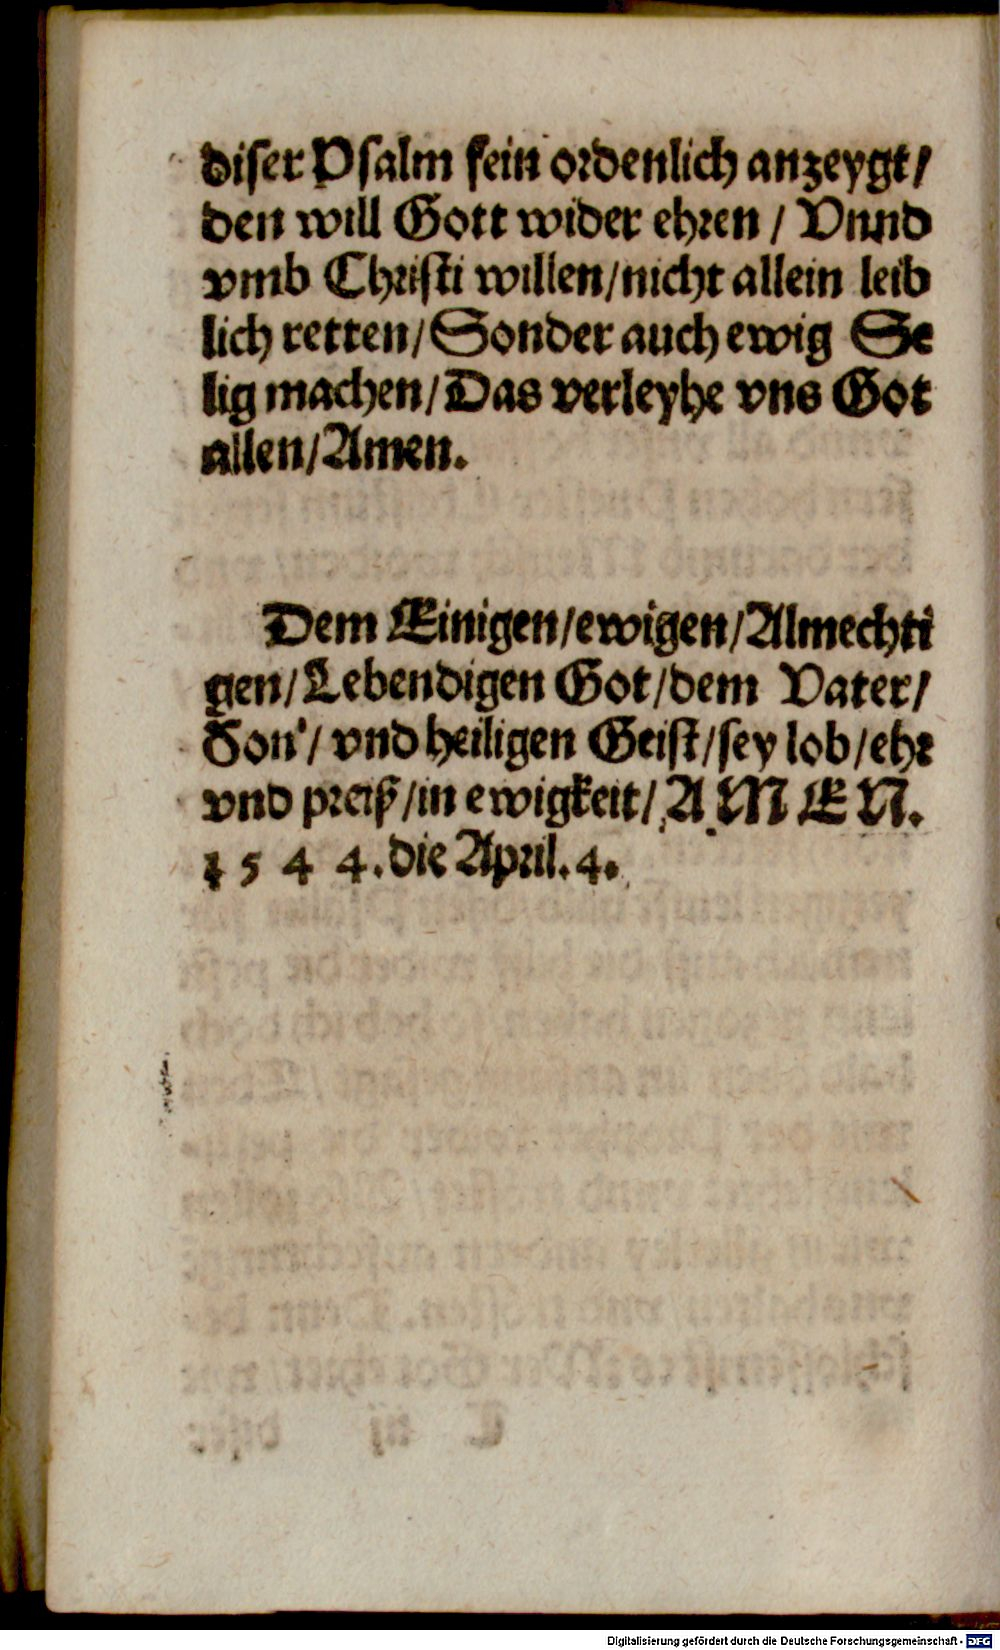 diser Psalm fein ordenlich anzeygt/
den will Gott wider ehren / Vnnd
vmb Christi willen/nicht allein leib
lich retten/Sonder auch ewig Se
lig machen/Das verleyhe vns Got
allen/Amen.
Dem Einigen/ewigen/Almechti
gen/Lebendigen Got/dem Vater/
Son/ vnd heiligen Geist/sey lob/ehr
vnd preiß/in ewigkeit/ AMEN.
1 5 4 4. die April. 4.
Digitalisierung gefördert durch die Deutsche Forschungsgemeinschaft - DFG